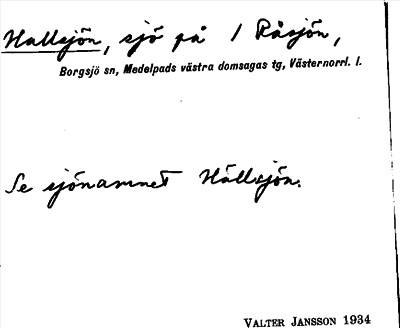 Hallsjön, sjö på / Råsjön,
Borgsjö sn, Medelpads västra domsagas tg, Västernorrl. l.
Se sjönamnet Hällsjön.
VALTER JANSSON 1934